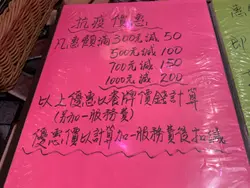 抗疫優惠
凡惠顧滿300元減50
500元減100
700元減150
1000元減200
以上優惠以餐牌價錢計算
(另加一服務費)
優惠價以計算加一服務費後扣減